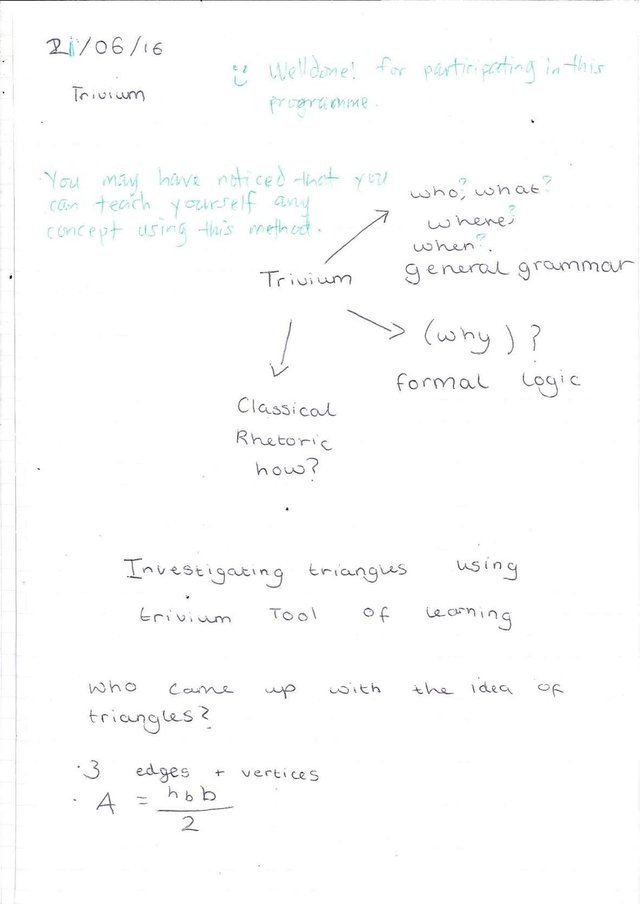 21/06/16
Trivium
Welldone! for participating in this
programme.
You may have noticed that you
can teach yourself any
concept using this method.
who? what?
where?
when?.
general grammar
Trivium
(why)?
formal logic
Classical
Rhetoric
how?
Investigating triangles using
trivium Tool of learning
who came up with the idea of
triangles?
· 3 edges + vertices
· A = hbb
2